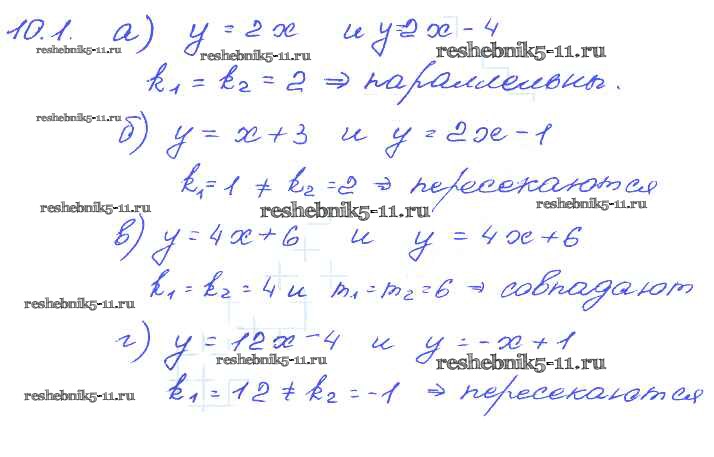 10.1. а) y = 2x и y=2x - 4
reshebnik5-11.ru reshebnik5-11.ru reshebnik5-11.ru
k₁ = k₂ = 2 ⇒ параллельны.
reshebnik5-11.ru
б) y = x + 3 и y = 2x - 1
k₁ = 1 ≠ k₂ = 2 ⇒ пересекаются
reshebnik5-11.ru reshebnik5-11.ru reshebnik5-11.ru
в) y = 4x + 6 и y = 4x + 6
k₁ = k₂ = 4 и m₁ = m₂ = 6 ⇒ совпадают
reshebnik5-11.ru
г) y = 12x - 4 и y = -x + 1
reshebnik5-11.ru reshebnik5-11.ru
k₁ = 12 ≠ k₂ = -1 ⇒ пересекаются
reshebnik5-11.ru